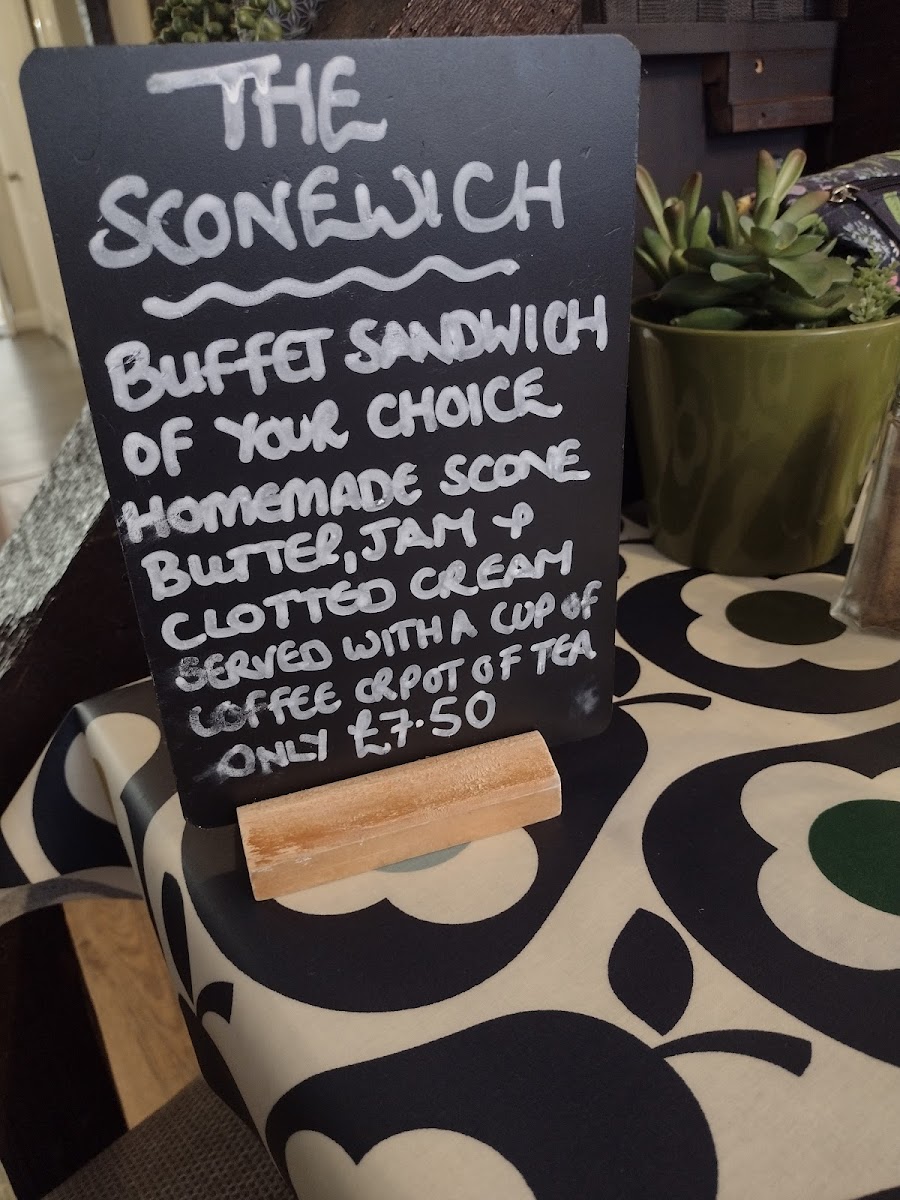 THE
SCONEWICH
BUFFET SANDWICH
OF YOUR CHOICE
HOMEMADE SCONE
BUTTER, JAM &
CLOTTED CREAM
SERVED WITH A CUP OF
COFFEE OR POT OF TEA
ONLY £7.50